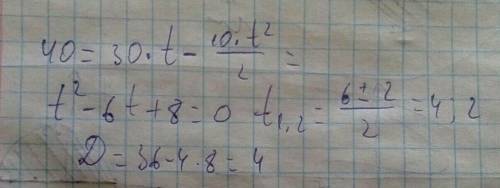 40 = 30·t - 10·t²/2 =
t² - 6t + 8 = 0 t₁,₂ = 6 ± 2/2 = 4; 2
D = 36 - 4·8 = 4